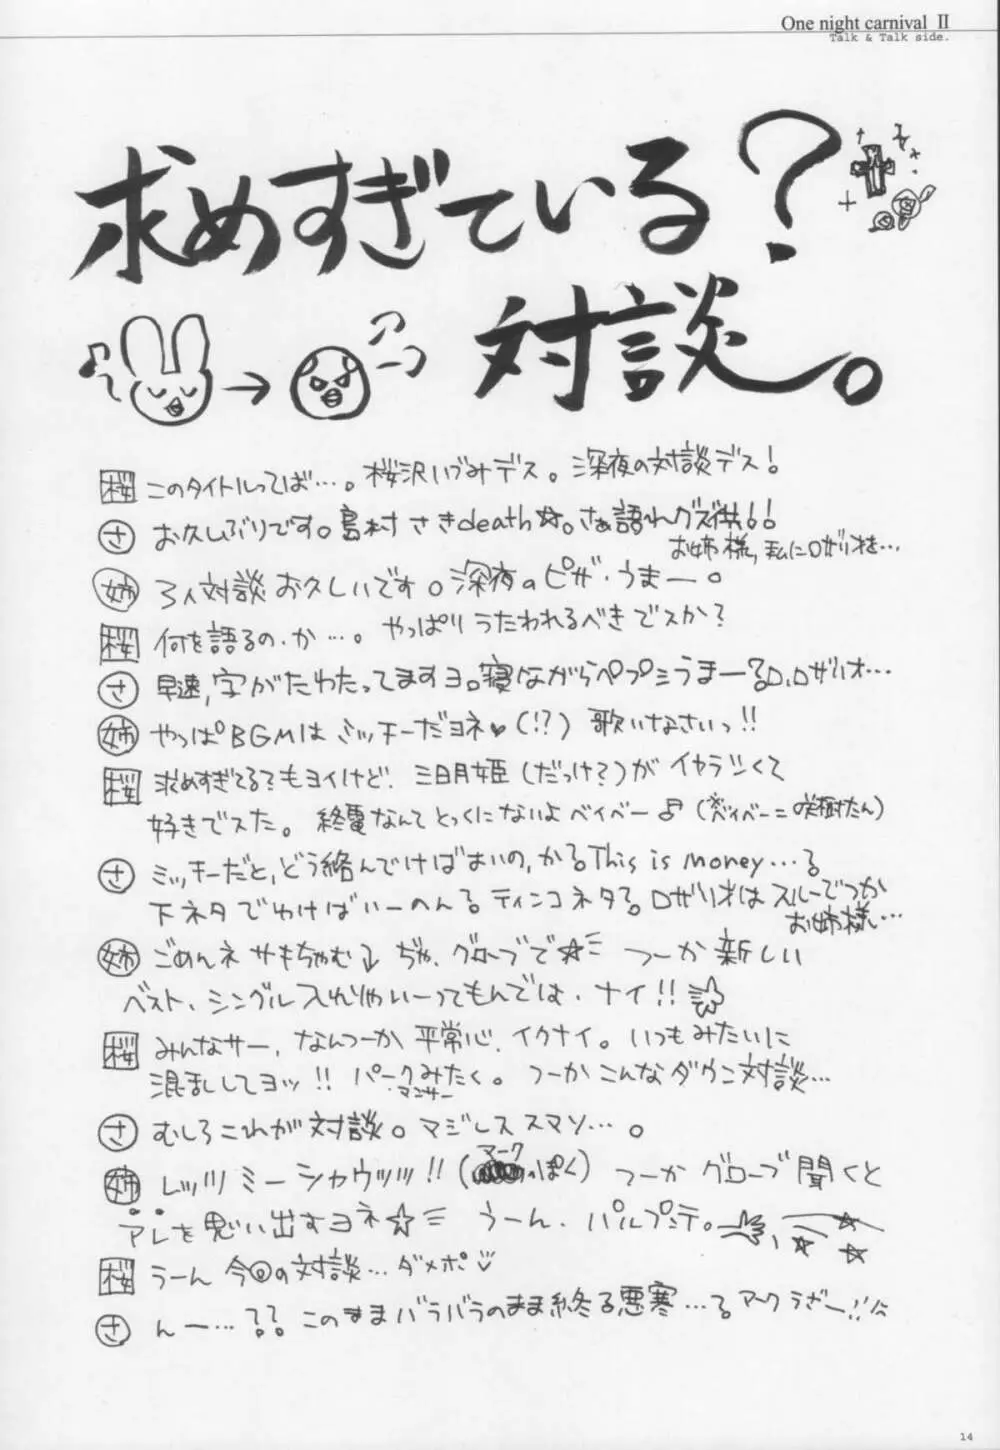 One night carnival II
Talk & Talk side.
求めすぎている?
対談。
桜 このタイトルってば…。桜沢いづみデス。深夜の対談デス!
さ お久しぶりです。島村さきdeath☆。さぁ語れグズ共!!
お姉様,私にロザリオを…
姉 3人対談お久しいです。深夜のピザ・うまー。
桜 何を語るの・か…。やっぱりうたわれるべきでスか?
さ 早速,字がたわたってますヨ。寝ながらペプシうまー?。ロ,ロザリオ…
姉 やっぱBGMはミッチーだヨネ♥(!?) 歌いなさいっ!!
桜 求めすぎてる?もヨイけど、三日月姫(だっけ?)がイヤラシくて
好きでスた。終電なんてとっくにないよベイベー♪(※ベイベー=咲樹たん)
さ ミッチーだと,どう絡んでけばよいの,かる。This is money…る
下ネタでわけばいーのんる。ティンコネタる。ロザリオはスルーでつか
お姉様…
姉 ごめんネサキちゃむ↓ ぢゃ、グローブで☆ つーか新しい
ベスト、シングル入れじゃいーってもんでは、ナイ!!
桜 みんなサー、なんつーか平常心、イクナイ。いつもみたいに
混乱してヨッ!! パークみたく。つーかこんなダウン対談…
マンサー
さ むしろこれが対談。マジレススマソ…。
姉 レッツミーシャウッッ!!(マークっぽく) つーかグローブ聞くと
アレを思い出すヨネ☆ うーん、パルプンテ。
桜 うーん今回の対談…ダメポ
さ んー…?? このままバラバラのまま終る悪寒…る マークうざー!!
14